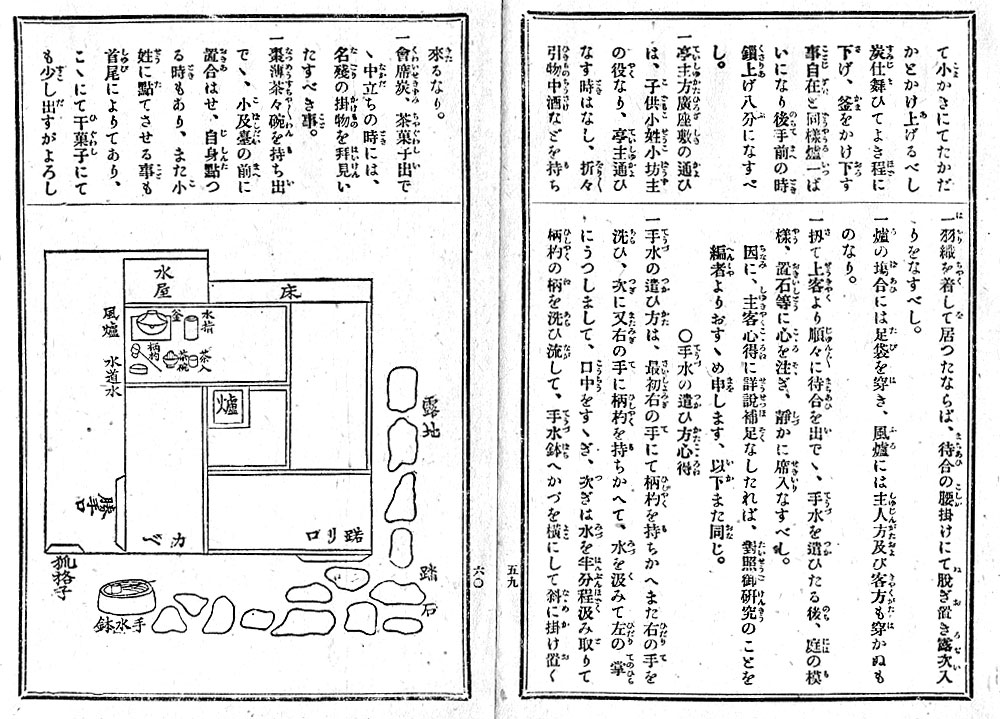 て小かきにてたかだ
かとかけ上げるべし
炭仕舞ひてよき程に
下げ、釜をかけ下す
事自在と同樣爐一ぱ
いになり後手前の時
鎖上げ八分になすべ
し。
一亭主方廣座敷の通ひ
は、子供小姓小坊主
の役なり、亭主通ひ
なす時はなし、折々
引物中酒などを持ち
一羽織を着して居つたならば、待合の腰掛けにて脱ぎ置き露次入
りをなすべし。
一爐の塲合には足袋を穿き、風爐には主人方及び客方も穿かぬも
のなり。
一扨て上客より順々に待合を出で、手水を遣ひたる後、庭の模
樣、置石等に心を注ぎ、靜かに席入なすべし。
因に、主客心得に詳說補足なしたれば、對照御硏究のことを
編者よりおすゝめ申します、以下また同じ。
○手水の遣ひ方心得
一手水の遣ひ方は、最初右の手にて柄杓を持ちかへまた右の手を
洗ひ、次に又右の手に柄杓を持ちかへて、水を汲みて左の掌
にうつしまして、口中をすゝぎ、次ぎは水を半分程汲み取りて
柄杓の柄を洗ひ流して、手水鉢へかづを橫にして斜に掛け置く
五九
來るなり。
一會席炭、茶菓子出で
ゝ中立ちの時には、
名殘の掛物を拜見い
たすべき事。
一棗薄茶々碗を持ち出
で、小及臺の前に
置合はせ、自身點つ
る時もあり、また小
姓に點てさせる事も
首尾によりてあり、
こゝにて干菓子にて
も少し出すがよろし
六〇
床
水屋
水指
釜
茶入
茶碗
柄杓
風爐
水道水
爐
露地
勝手口
カベ
踞リロ
狐格子
踏石
手水鉢